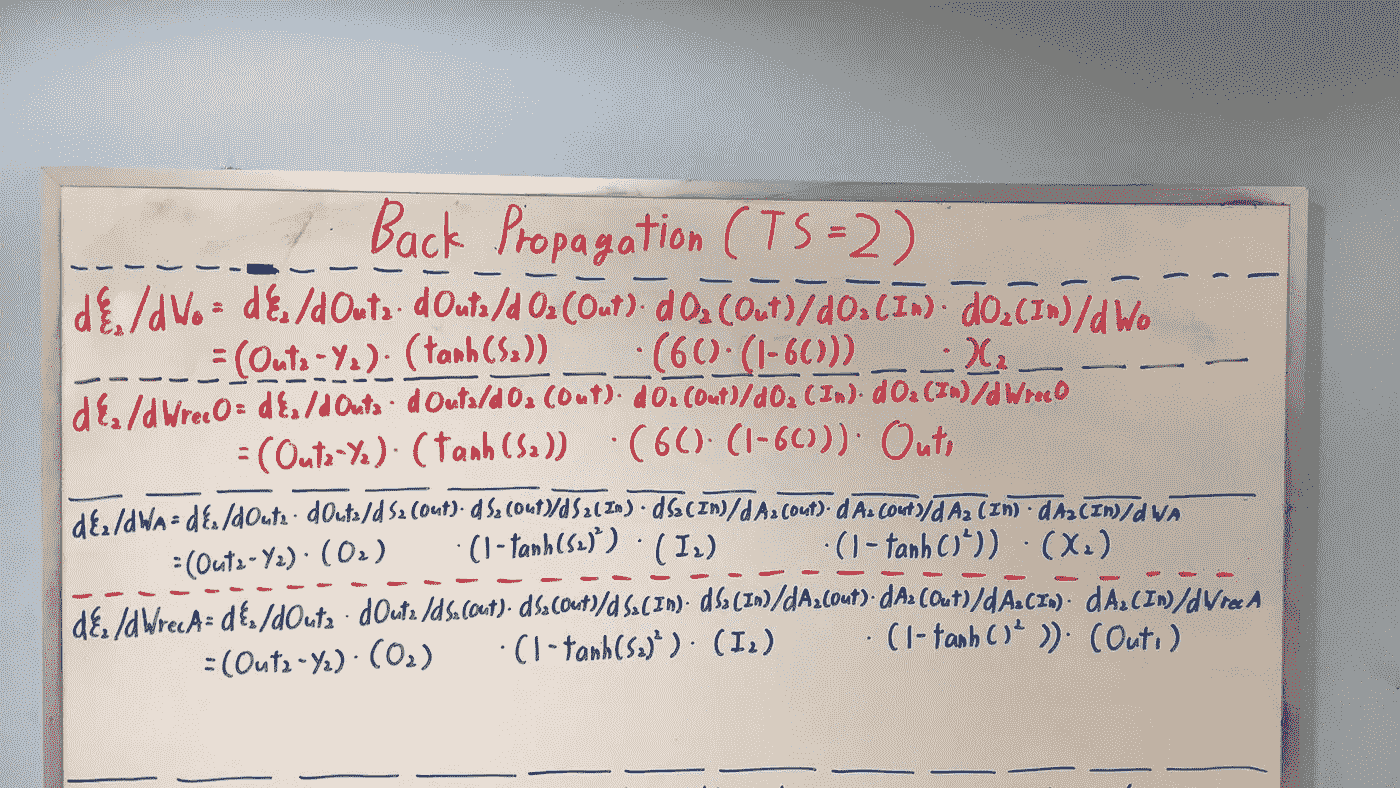 Back Propagation (TS=2)
dξ₂/dWo = dξ₂/dOut₂ · dOut₂/dO₂(Out) · dO₂(Out)/dO₂(In) · dO₂(In)/dWo
=(Out₂-Y₂) · (tanh(S₂)) · (6() · (1-6())) · X₂
dξ₂/dWrecO = dξ₂/dOut₂ · dOut₂/dO₂(Out) · dO₂(Out)/dO₂(In) · dO₂(In)/dWrecO
=(Out₂-Y₂) · (tanh(S₂)) · (6() · (1-6())) · Out₁
dξ₂/dWA = dξ₂/dOut₂ · dOut₂/dS₂(Out) · dS₂(Out)/dS₂(In) · dS₂(In)/dA₂(Out) · dA₂(Out)/dA₂(In) · dA₂(In)/dWA
=(Out₂-Y₂) · (O₂) · (1-tanh(S₂)²) · (I₂) · (1-tanh()²)) · (X₂)
dξ₂/dWrecA = dξ₂/dOut₂ · dOut₂/dS₂(Out) · dS₂(Out)/dS₂(In) · dS₂(In)/dA₂(Out) · dA₂(Out)/dA₂(In) · dA₂(In)/dWrecA
=(Out₂-Y₂) · (O₂) · (1-tanh(S₂)²) · (I₂) · (1-tanh()²)) · (Out₁)